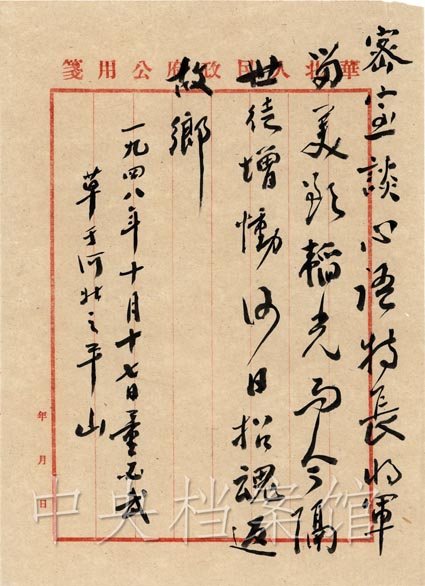 華北人民政府公用箋
密室談心語特長將軍
留美歛韜光而今隔
世徒增慟何日招魂返
故鄉
一九四八年十月十七日董必武
草于河北之平山
年 月 日
中央档案馆